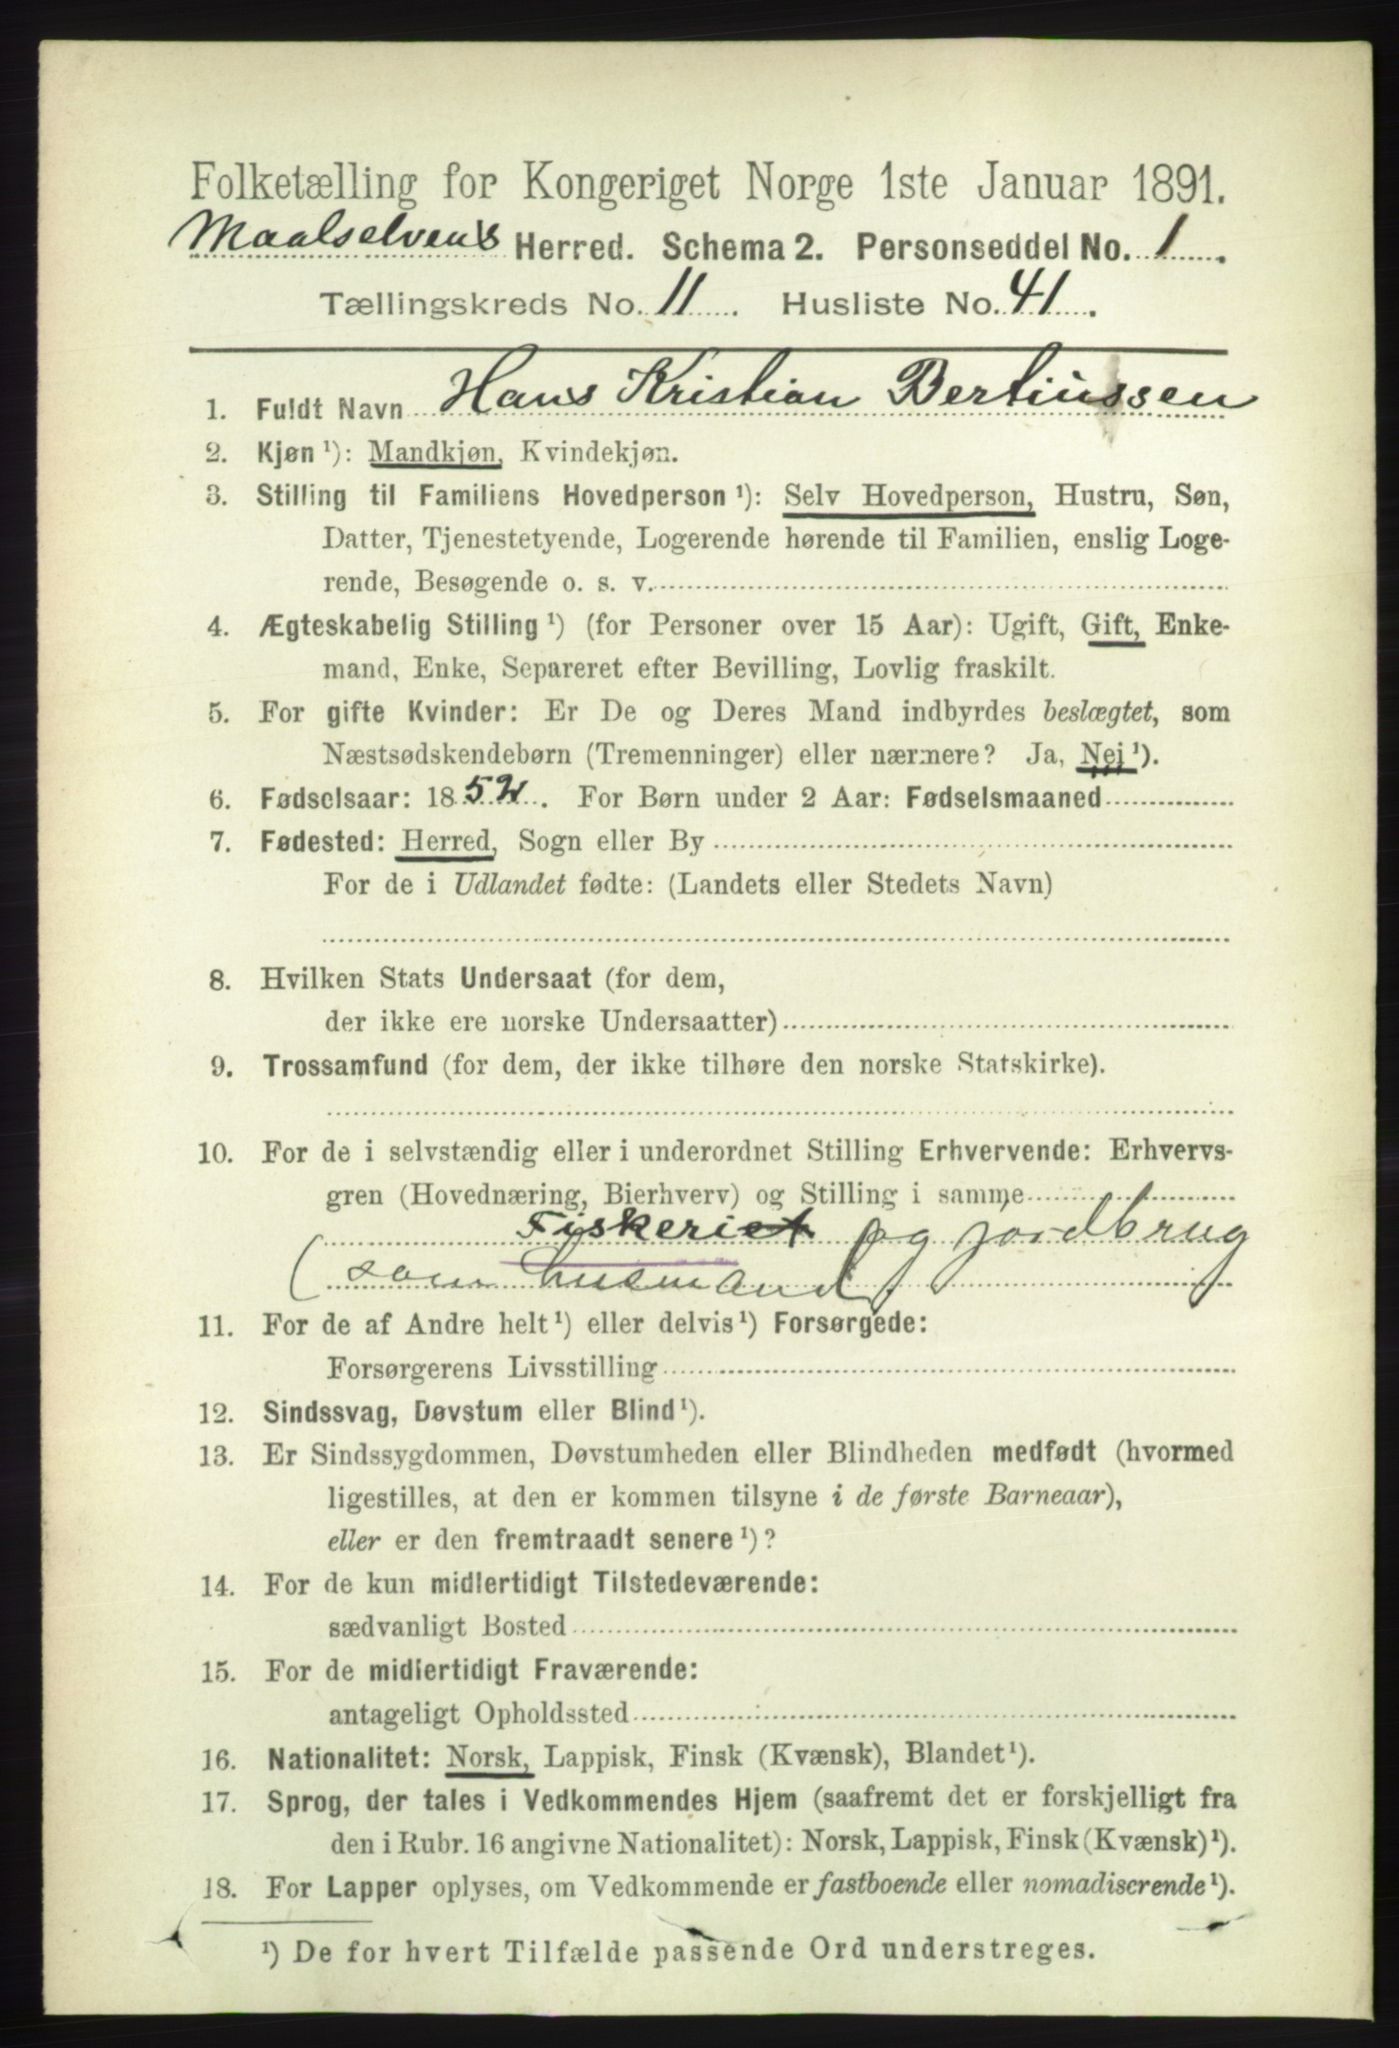 Folketælling for Kongeriget Norge 1ste Januar 1891.
Maalselvens Herred. Schema 2. Personseddel No. 1.
Tællingskreds No. 11. Husliste No. 41.
1. Fuldt Navn Hans Kristian Bertiussen
2. Kjøn ¹): Mandkjøn, Kvindekjøn.
3. Stilling til Familiens Hovedperson ¹): Selv Hovedperson, Hustru, Søn,
Datter, Tjenestetyende, Logerende hørende til Familien, enslig Loge-
rende, Besøgende o. s. v.
4. Ægteskabelig Stilling ¹) (for Personer over 15 Aar): Ugift, Gift, Enke-
mand, Enke, Separeret efter Bevilling, Lovlig fraskilt.
5. For gifte Kvinder: Er De og Deres Mand indbyrdes beslægtet, som
Næstsødskendebørn (Tremenninger) eller nærmere? Ja, Nej ¹).
6. Fødselsaar: 1852. For Børn under 2 Aar: Fødselsmaaned
7. Fødested: Herred, Sogn eller By
For de i Udlandet fødte: (Landets eller Stedets Navn)
8. Hvilken Stats Undersaat (for dem,
der ikke ere norske Undersaatter)
9. Trossamfund (for dem, der ikke tilhøre den norske Statskirke).
10. For de i selvstændig eller i underordnet Stilling Erhvervende: Erhvervs-
gren (Hovednæring, Bierhverv) og Stilling i samme
Fiskeriet og jordbrug
(som husmand)
11. For de af Andre helt ¹) eller delvis ¹) Forsørgede:
Forsørgerens Livsstilling
12. Sindssvag, Døvstum eller Blind ¹).
13. Er Sindssygdommen, Døvstumheden eller Blindheden medfødt (hvormed
ligestilles, at den er kommen tilsyne i de første Barneaar),
eller er den fremtraadt senere ¹)?
14. For de kun midlertidigt Tilstedeværende:
sædvanligt Bosted
15. For de midlertidigt Fraværende:
antageligt Opholdssted
16. Nationalitet: Norsk, Lappisk, Finsk (Kvænsk), Blandet ¹).
17. Sprog, der tales i Vedkommendes Hjem (saafremt det er forskjelligt fra
den i Rubr. 16 angivne Nationalitet): Norsk, Lappisk, Finsk (Kvænsk) ¹).
18. For Lapper oplyses, om Vedkommende er fastboende eller nomadiserende ¹).
¹) De for hvert Tilfælde passende Ord understreges.